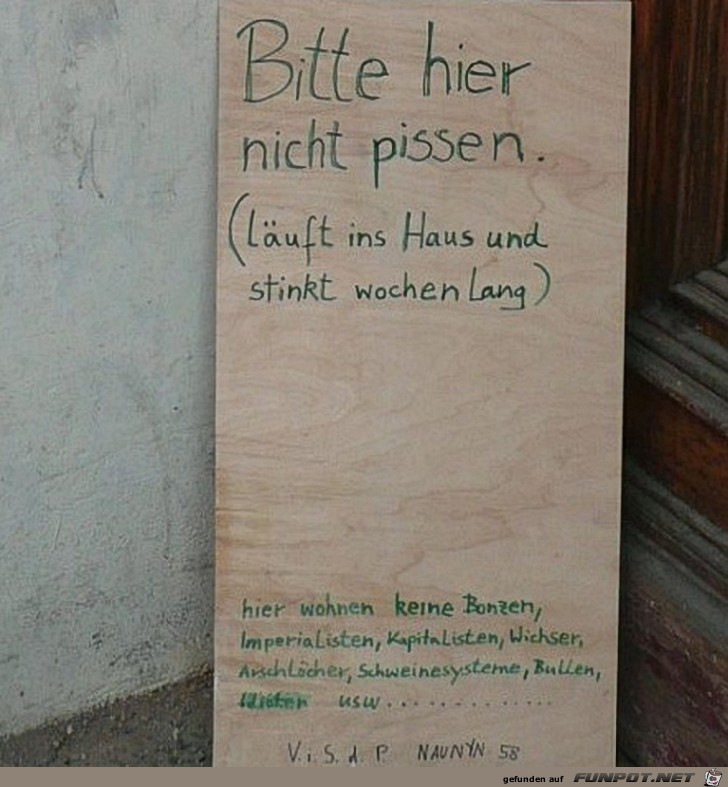 Bitte hier
nicht pissen.
(läuft ins Haus und
stinkt wochen lang)
hier wohnen keine Bonzen,
Imperialisten, Kapitalisten, Wichser,
Arschlöcher, Schweinesysteme, Bullen,
usw.............
V.i.S.d.P. NAUNYN 58
gefunden auf FUNPOT.NET